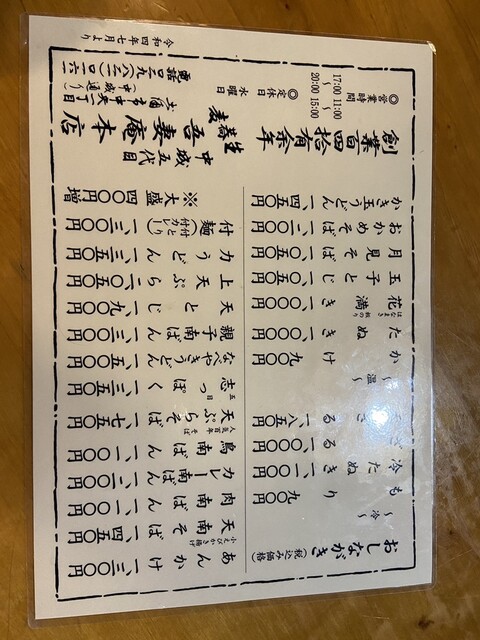 おしながき（税込み価格）
～冷～
もり 九〇〇円
冷たぬき 一、〇〇〇円
ざる 一、〇〇〇円
ざる 一、八五〇円
～温～
かけ 九〇〇円
たぬき 一、〇〇〇円
花満き 一、〇〇〇円
玉子とじ 一、〇五〇円
月見そば 一、〇五〇円
おかめそば 一、三〇〇円
かき玉うどん 一、四五〇円
あんかけ 一、三〇〇円
天南そば 小えびかき揚げ 一、四五〇円
肉南ばん 一、一〇〇円
カレー南ばん 一、一〇〇円
鳥南ばん 一、一〇〇円
天ぷらそば 一、七五〇円
五目 志っぽく 一、三五〇円
なべやきうどん 一、五〇〇円
親子南ばん 一、三〇〇円
天とじ 一、九〇〇円
上天ぷら 二、〇五〇円
力うどん 一、一〇〇円
付麺（付とり 付カレー） 一、三〇〇円
※大盛 四〇〇円増
創業百四拾有余年
生蕎麦 吾妻庵本店
中城五代目
土浦市中央一丁目（中城通り）
電話 〇二九（八二一）〇一六二
◎営業時間
11:00～15:00
17:00～20:00
◎定休日 水曜日
令和四年七月より